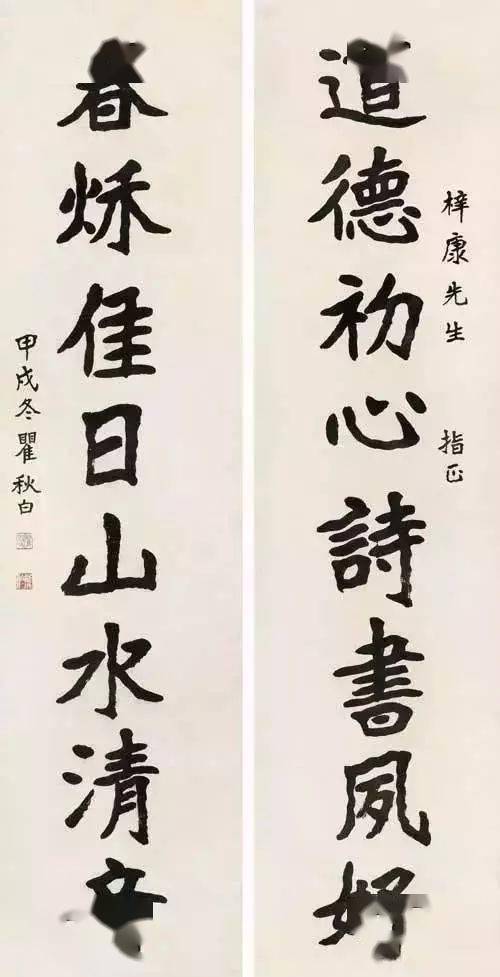 梓康先生 指正
道德初心詩書夙好
春秌佳日山水清
甲戌冬瞿秋白